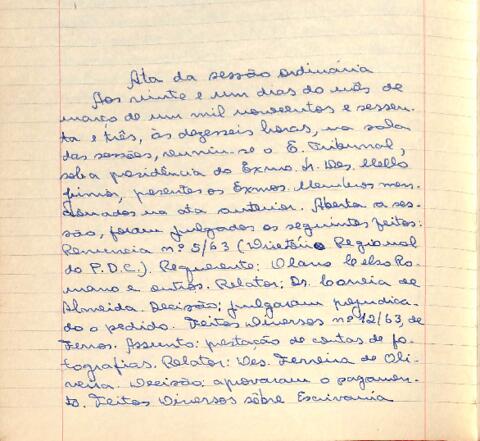 Ata da sessão ordinária
Aos vinte e um dias do mês de
março de um mil novecentos e sessen-
ta e três, às dezesseis horas, na sala
das sessões, reuniu-se o E. Tribunal,
sob a presidência do Exmo. Sr. Des. Mello
Júnior, presentes os Exmos. Membros men-
cionados na ata anterior. Aberta a ses-
são, foram julgados os seguintes feitos:
Renuncia nº 5/63 (Diretório Regional
do P.D.C.). Requerente: Olavo Celso Ro-
mano e outros. Relator: Dr. Correia de
Almeida. Decisão: julgaram prejudica-
do o pedido. Feitos Diversos nº 12/63, de
Ferros. Assunto: prestação de contas de fo-
tografias. Relator: Des. Ferreira de Oli-
veira. Decisão: aprovaram o pagamen-
to. Feitos Diversos sôbre Escrivania